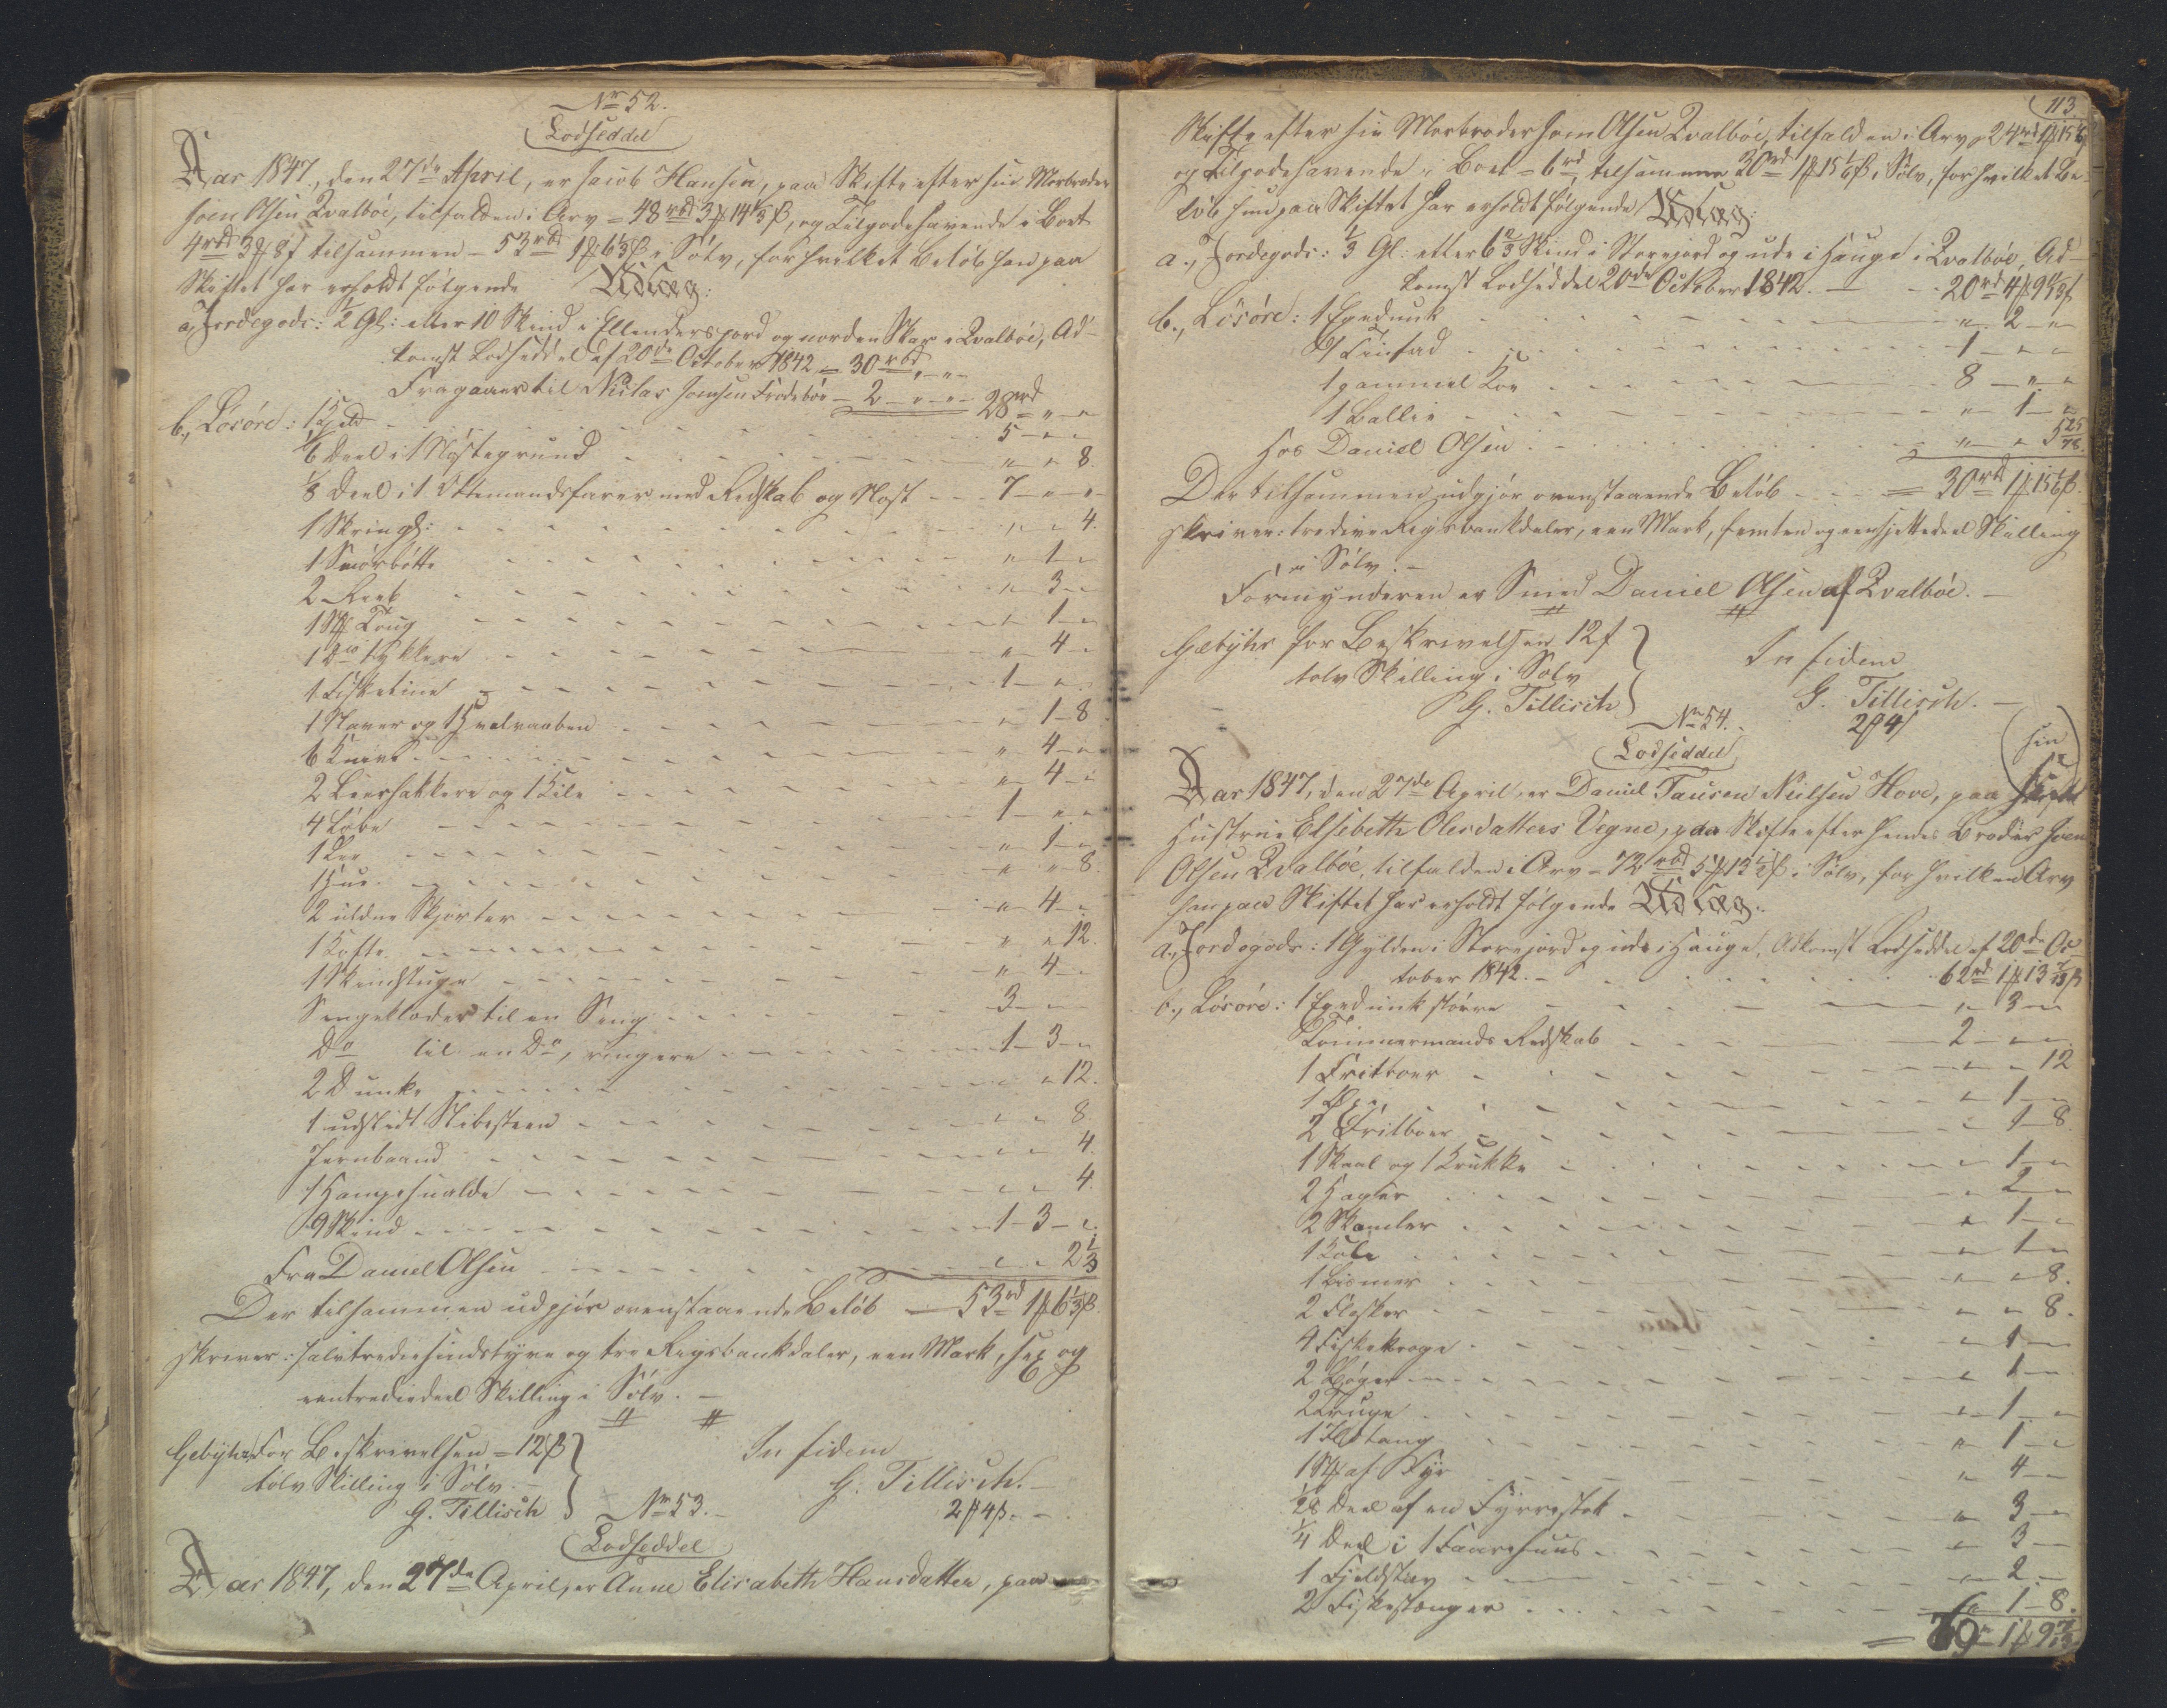 Nr 52.
Lodseddel
Aar 1847, den 27de April, er Jacob Hansen, paa Skifte efter sin Morbroder
Joen Olsen Qvalböe, tilfalden i Arv = 48 rbd 3 14 1/3 ß, og Tilgodehavende i Boet
4 rbd 3 8 ß tilsammen - 53 rbd 1 6 1/3 ß i Sölv, for hvilket Belöb han paa
Skiftet har erholdt følgende Udlæg:
a, Jordegods: 1/2 Gl: eller 10 Skind i Ellendersjord og norden Skar i Qvalböe, Ad-
komst Lodseddel af 20de October 1842 = 30 rbd " - "
Fragaaer til Niclas Joensen Frodeböe - 2 - " - " - 28 rd " - "
b, Lösöre: 1 - - - 5 - " - "
1/6 Deel i 1 Nöstegrund - - - " - " 8.
1/8 Deel i 1 Ottemandsfarer med Redskab og Nöst - - - 7 - " - "
1 Skrin gl: - - - " - " 4.
1 Smörbötte - - - " - 1 - "
2 Reeb - - - " - 3 - "
1 Toug - - - " - 1 - "
1 Do tykkere - - - " - 4 - "
1 Fisketine - - - 1 - " - "
1 Naver og 1 Hvalvaaben - - - " - 1 - 8
6 Knive - - - " - 4 - "
2 og 1 Kile - - - " - 4 - "
4 Löbe - - - 1 - " - "
1 Lee - - - " - 1 - "
1 - - - " - " 8.
2 uldne Skjorter - - - " - 4 - "
1 Kofte - - - " - " 12.
1 Skindstuge - - - " - 4 - "
Sengeklæder til en Seng - - - 3 - " - "
Do til en Do, ringere - - - 1 - 3 - "
2 Dunke - - - " - " 12.
1 udslidt Slibesteen - - - " - " 8.
Jernbaand - - - " - " 4.
1 - - - " - " 4.
9 Skind - - - 1 - 3 - "
Fra Daniel Olsen - - - " - " 2 1/3
Der tilsammen udgjör ovenstaaende Belöb - 53 rd 1 6 1/3 ß.
skriver: halvtrediesindstyve og tre Rigsbankdaler, een Mark, sex og
eentrediedeel Skilling i Sölv. -
Gebyhr for Beskrivelsen = 12 ß
tolv Skilling i Sölv. -
G. Tillisch
In fidem
G. Tillisch. -
2 4 ß. -
Nr 53. -
Lodseddel
Aar 1847, den 27de April, er Anne Elisabeth Hansdatter, paa
113
Skifte efter sin Morbroder Joen Olsen Qvalböe, tilfalden i Arv = 24 rd 1 15 1/6
og Tilgodehavende i Boet = 6 rd, tilsammen 30 rd 1 15 1/6 ß i Sölv, for hvilket Be-
löb hun paa Skiftet har erholdt følgende Udlæg:
a., Jordegods: 1/3 Gl: eller 6 2/3 Skind i Storejord og ude i Hauge i Qvalböe, Ad-
komst Lodseddel 20de October 1842. - - 20 rd 4
b., Lösöre: 1 Egedunk - - - " - 2 - "
1 - - - 1 - " - "
1 gammel Koe - - - 8 - " - "
1 Ballie - - - " - 1 - "
Hos Daniel Olsen - - - " - " 5
Der tilsammen udgjör ovenstaaende Belöb - - - = 30 rd 1 15 1/6 ß.
skriver: tredive Rigsbankdaler, een Mark, femten og eensjettedeel Skilling
i Sölv. -
Formynderen er Smed Daniel Olsen af Qvalböe. -
Gebyhr for Beskrivelsen 12 ß
tolv Skilling i Sölv
G. Tillisch
In fidem
G. Tillisch. -
2 4 ß
Nr 54.
Lodseddel
Aar 1847, den 27de April, er Daniel Tausen Nielsen Hove, paa sin
Hustrue Elsebeth Olesdatters Vegne, paa Skifte efter hendes Broder Joen
Olsen Qvalböe, tilfalden i Arv - 72 rbd 5 13 1/2 ß i Sölv, for hvilken Arv
han paa Skiftet har erholdt følgende Udlæg:
a., Jordegods: 1 Gylden i Storejord og ude i Hauge, Adkomst Lodseddel af 20de Oc-
tober 1842. - - - 62 rd 1 13
b., Lösöre: 1 Egedunk större - - - " - 3 - "
Tömmermands Redskab - - - 2 - " - "
1 - - - " - " 12
1 - - - " - 1 - "
2 - - - " - 1 - 8
1 Skaal og 1 Krukke - - - " - 1 - "
2 - - - " - 2 - "
2 Skamler - - - " - 1 - "
1 - - - " - 1 - "
1 Bismer - - - " - " 8.
2 Flasker - - - " - " 8.
4 Fiskekroge - - - " - 1 - "
2 Böger - - - " - 1 - "
2 - - - " - 1 - "
1 Ildtang - - - " - 1 - "
1 af Fyr - - - " - 4 - "
1/28 Deel af en Fyrrestok - - - " - 3 - "
1/4 Deel i 1 Faarehuus - - - " - 3 - "
1 Fjeldstav - - - " - 2 - "
2 Fiskestænger - - - " - 1 - 8.
= 69 - 1 9